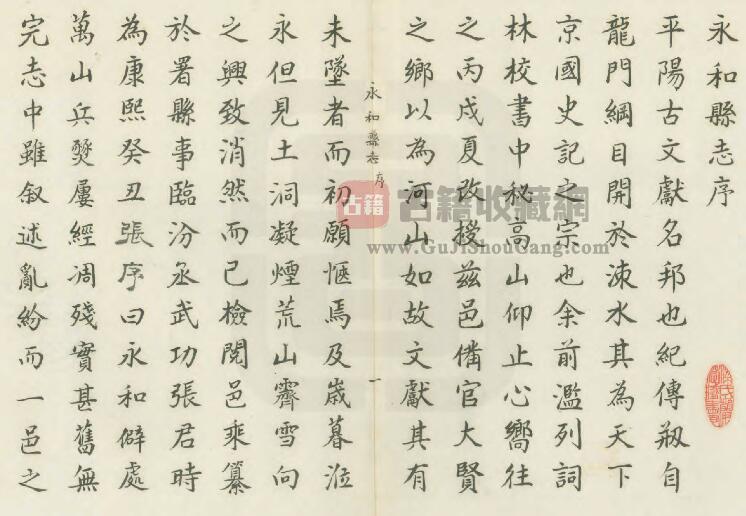 永和縣志序
平陽古文獻名邦也紀傳剏自
龍門綱目開於涑水其為天下
京國史記之宗也余前濫列詞
林校書中秘高山仰止心嚮往
之丙戌夏改授兹邑僃官大賢
之鄉以為河山如故文獻其有
永和縣志序
一
未墜者而初願愜焉及歲暮涖
永但見土洞凝煙荒山霽雪向
之興致消然而已檢閱邑乘纂
於署縣事臨汾丞武功張君時
為康熙癸丑張序曰永和僻處
萬山兵燹屢經凋殘實甚舊無
完志中雖叙述亂紛而一邑之
古籍
古籍收藏網
www.GuJiShouCang.com